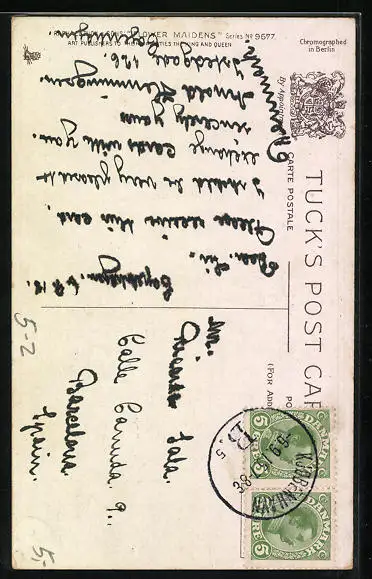 "FLOWER MAIDENS" Series No 9677.
ART PUBLISHERS TO THEIR MAJESTIES THE KING AND QUEEN
Chromographed
in Berlin
By Appointment
TUCK'S POST CAR
CARTE POSTALE
(FOR ADD
Copenhagen
Dear Sir.
Please receive this card.
I should be very pleased to
exchange cards with you.
sincerely yours
Arnold Henningsen
Istedgade 126.
Germany
Mr.
Ricardo Sala.
Calle Canuda 9.
Barcelona
Spain.
DANMARK
5 ØRE 5
DANMARK
ØRE 5
KJØBENHAVN
B. 5
5-2
5,-